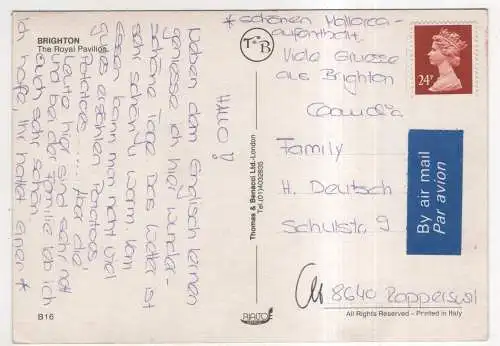 BRIGHTON
The Royal Pavilion
Hallo!
Neben dem Englisch lernen
geniesse ich hier wunder-
schöne Tage. Das Wetter ist
sehr schön u warm. Vom
essen kann man nicht viel
gutes erzählen Potatoes
Potatoes..... Aber die
Leute hier sind sehr nett
und bei der Familie leb ich
auch sehr schön.
Ich hoffe, Ihr hattet einen *
B16
Thomas & Benacci Ltd.-London
Tel.(01)4032835
T&B
RIALTO
* schönen Mallorca-
aufenthalt.
Viele Grüsse
aus Brighton
Claudia
24P
By air mail
Par avion
Family
H. Deutsch
Schulstr. 9
CH 8640 Rapperswil
All Rights Reserved - Printed in Italy